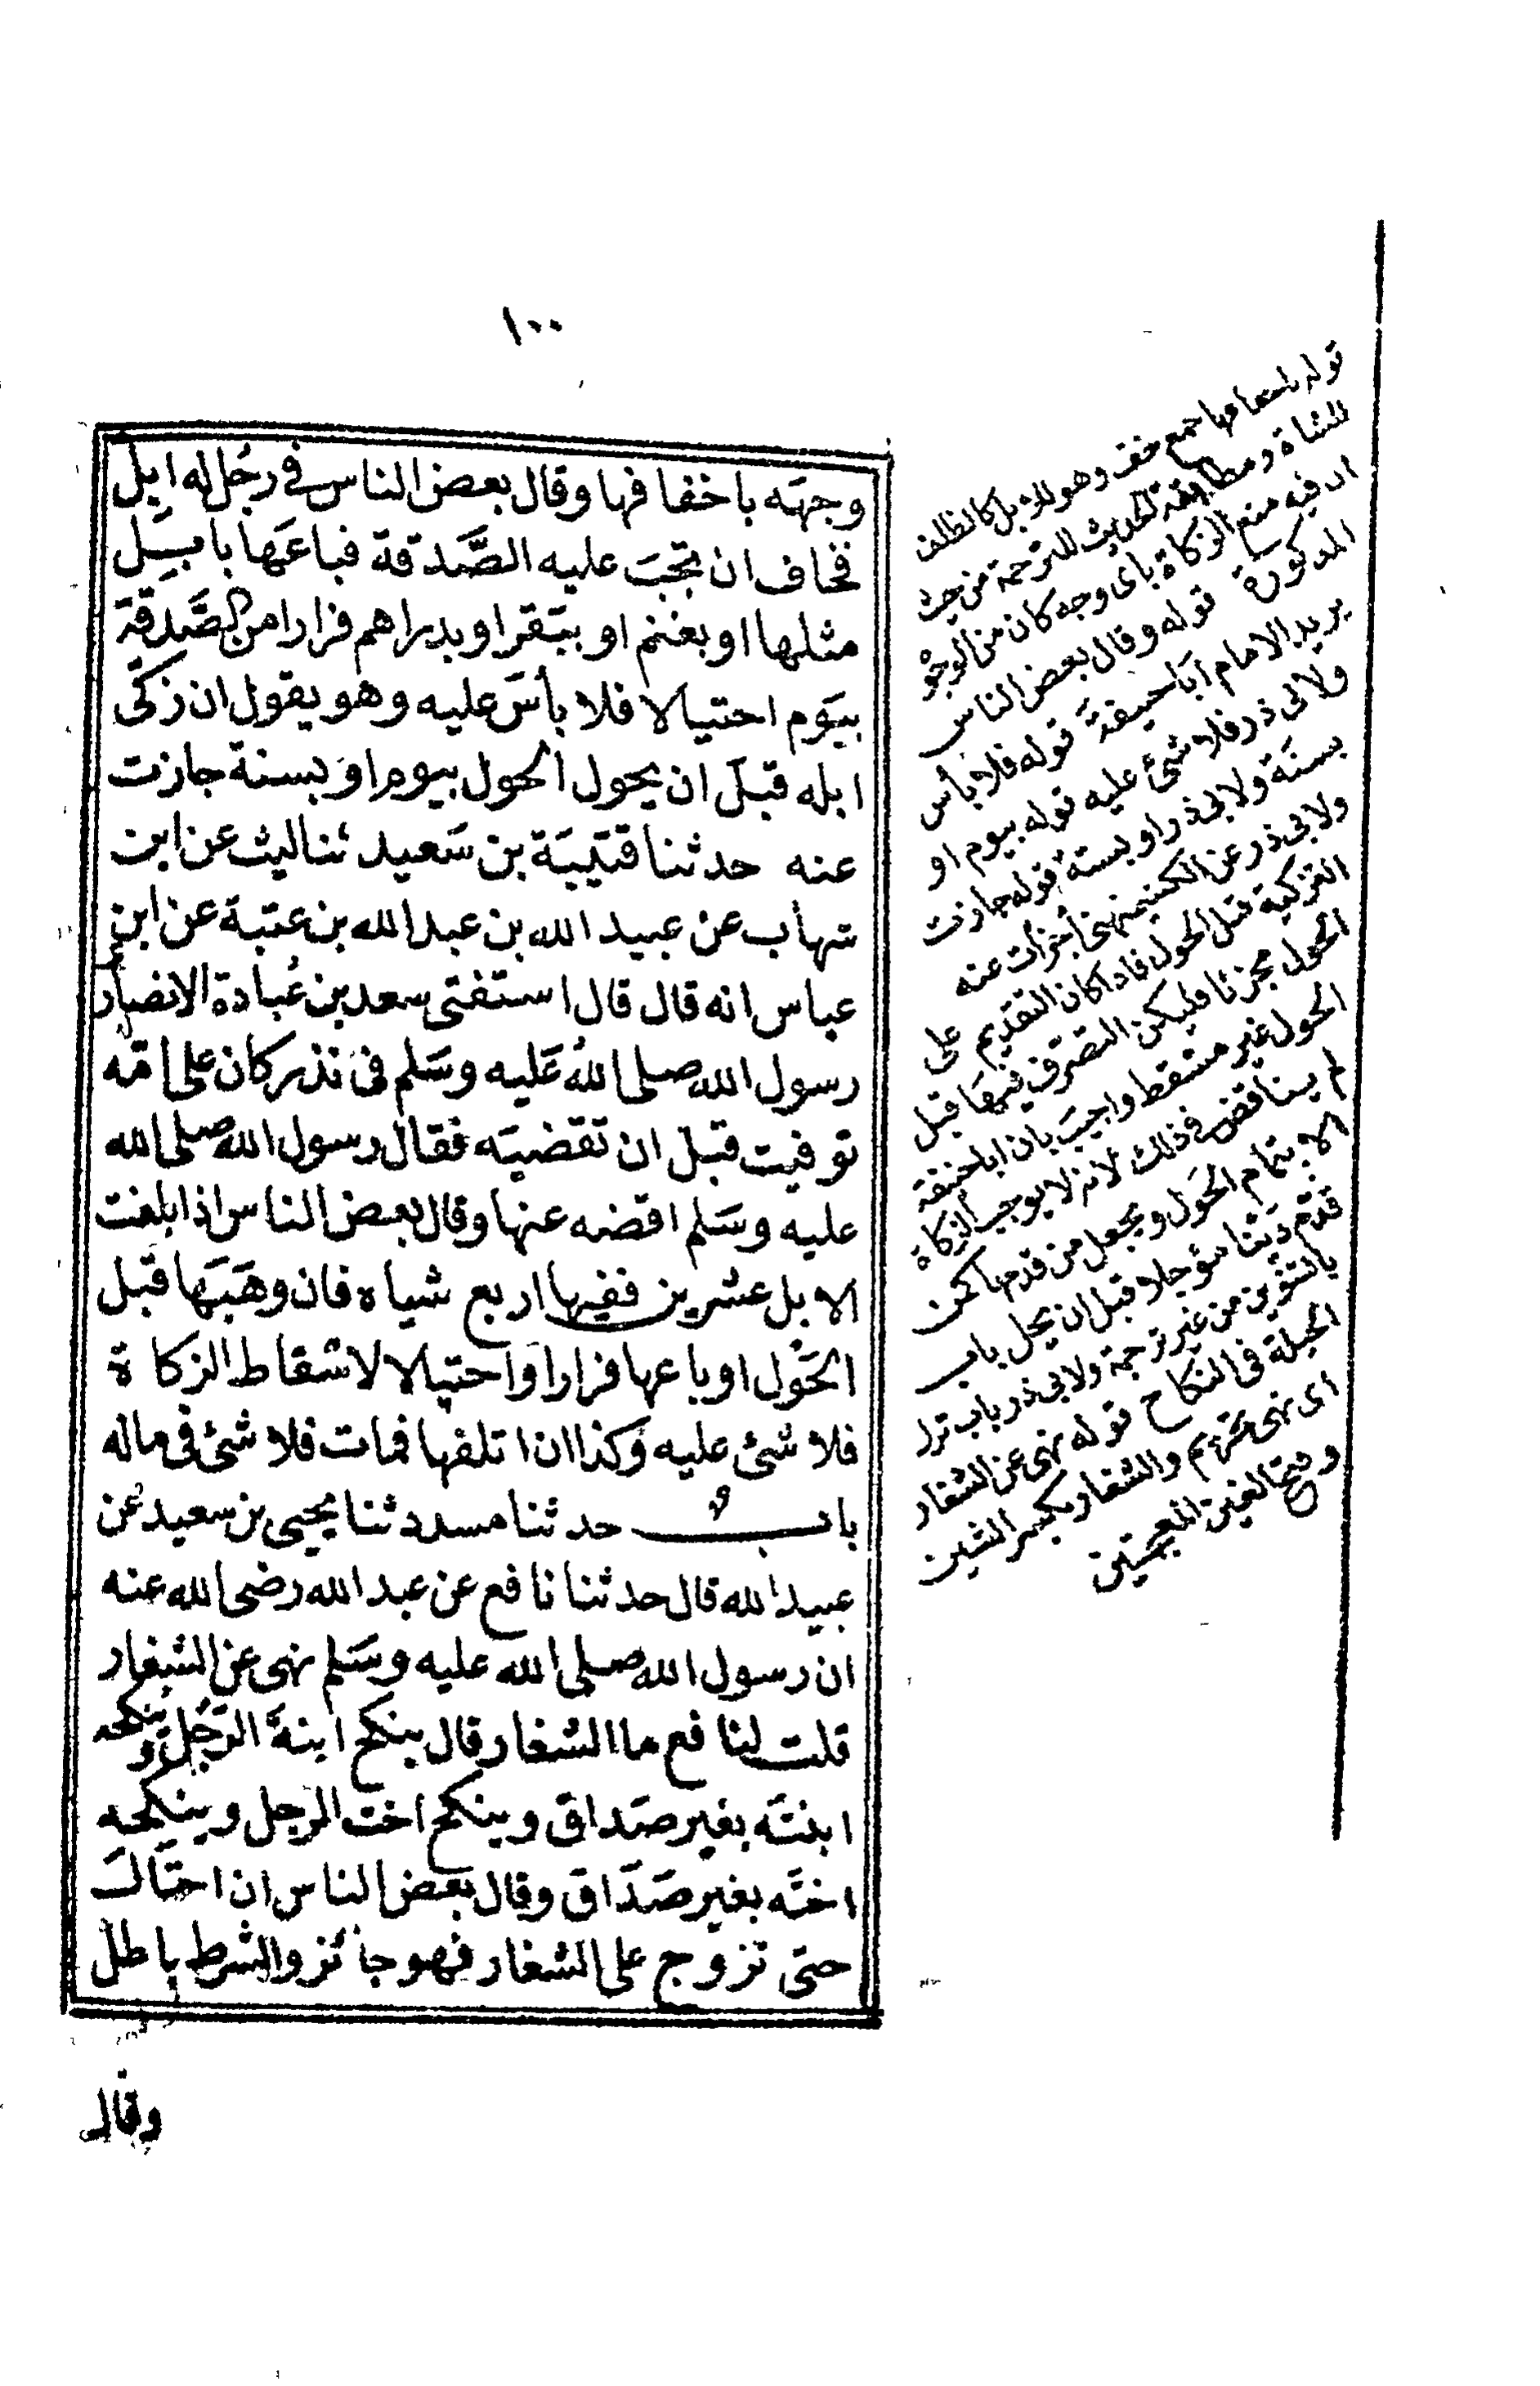 ١٠٠
وجهَه باخفافها وقال بعض الناس في رجُل له ابِل
فخاف ان تجبَ عليه الصَّدقة فباعَها بابِل
مثلها او بغنم او ببَقر او بدراهم فرارا من الصَّدقة
بيَوم احتيالا فلا بأسَ عليه وهو يقول ان زكّى
ابله قبلَ ان يحول الحول بيوم او بسنة جازت
عنه حدثنا قتيبَة بن سَعيد ثنا ليث عن ابن
شهاب عن عبيد الله بن عبد الله بن عتبة عن ابن
عباس انه قال قال استفتى سعد بن عُبادة الانصاري
رسول الله صلى اللهُ عَليه وسَلم فى نذر كان على امّه
توفيت قبل ان تقضيَه فقال رسول الله صلى الله
عليه وسَلم اقضه عنها وقال بعض الناس اذا بلغت
الابل عشرين ففيها اربع شياه فان وهَبَها قبل
الحَوْل او باعها فرارا او احتيالا لاسقاط الزكاة
فلا شئ عليه وَكذا ان اتلفها فمات فلا شئ فى ماله
باب حدثنا مسدد ثنا يحيى بن سعيد عَن
عبيد الله قال حدثنا نافع عن عبد الله رضى الله عنه
ان رسول الله صلى الله عليه وسَلم نهى عن الشغار
قلت لنافع ما الشغار قال ينكح ابنةَ الرّجُل وَيُنكحه
ابنتَه بغير صَداق وينكح اخت الرجل وينكِحه
اختَه بغير صَدَاق وقال بعض الناس ان احتَالَ
حتى تزوج على الشغار فهو جائز والشرط باطل
وقال
قوله باخفافها جمع خف وهو للابل كالظلف
للشاة ومطابقة الحديث للترجمة من حيث
ان فيه منع الزكاة باى وجه كان من الوجوه
المذكورة قوله وقال بعض الناس
يريد الامام ابا حنيفة قوله فلا بأس
ولابى ذر فلا شئ عليه قوله بيوم او
بسنة ولابى ذر او بستة قوله جازت
ولابى ذر عن الكشميهنى اجزأت عنه
التزكية قبل الحول فاذا كان التقديم على
الحول مجزئا فليكن التصرف فيها قبل
الحول غير مسقط واجيبَ بان ابا حنيفة
لم يتناقض فى ذلك لانه لا يوجب الزكاة
الا بتمام الحَول ويجعل من قدمها كمن
قدّم دَيْنا مؤجلا قبل ان يحل باب
بالتنوين من غير ترجمة ولابى ذر باب
الحيلة فى النكاح قوله نهى عن الشغار
اى نهى تحريم والشغار بكسر الشين
وفتح الغين المعجمتين